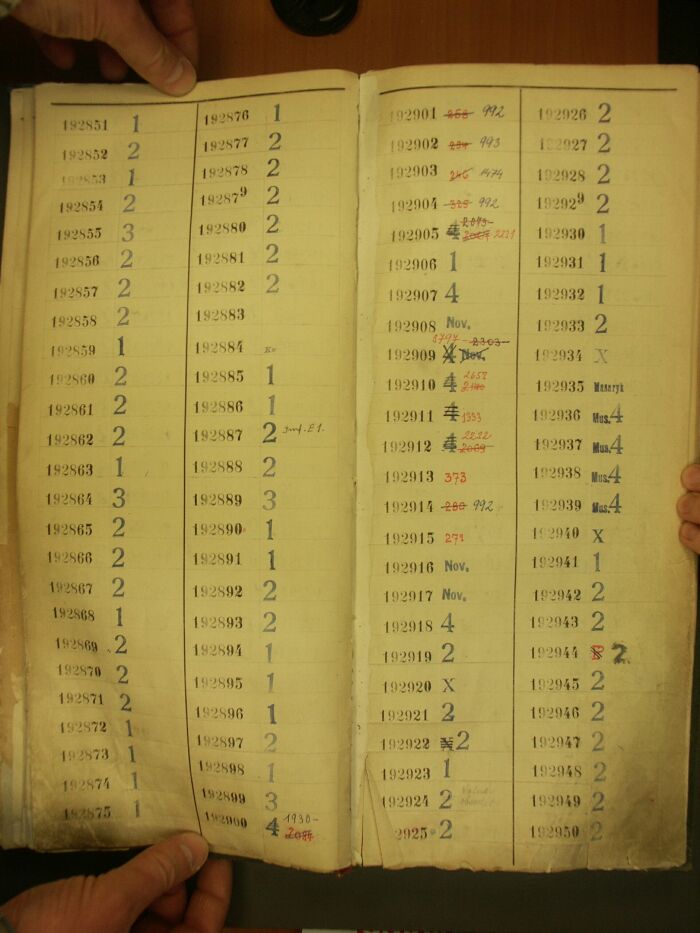 192851 1
192852 2
192853 1
192854 2
192855 3
192856 2
192857 2
192858 2
192859 1
192860 2
192861 2
192862 2
192863 1
192864 3
192865 2
192866 2
192867 2
192868 1
192869 2
192870 2
192871 2
192872 1
192873 1
192874 1
192875 1
192876 1
192877 2
192878 2
192879 2
192880 2
192881 2
192882 2
192883
192884
192885 1
192886 1
192887 2
192888 2
192889 3
192890 1
192891 1
192892 2
192893 2
192894 1
192895 1
192896 1
192897 2
192898 1
192899 3
192900 4 1930-
192901 992
192902 993
192903 1474
192904 992
192905 4 2095 2231
192906 1
192907 4
192908 Nov.
192909 4 Nov. 3797 2303
192910 4 2657
192911 4 1993
192912 4 2232 2069
192913 373
192914 280 992
192915 271
192916 Nov.
192917 Nov.
192918 4
192919 2
192920 X
192921 2
192922 2
192923 1
192924 2
2925 2
192926 2
192927 2
192928 2
192929 2
192930 1
192931 1
192932 1
192933 2
192934 X
192935 Masaryk
192936 Mus. 4
192937 Mus. 4
192938 Mus. 4
192939 Mus. 4
192940 X
192941 1
192942 2
192943 2
192944 2
192945 2
192946 2
192947 2
192948 2
192949 2
192950 2